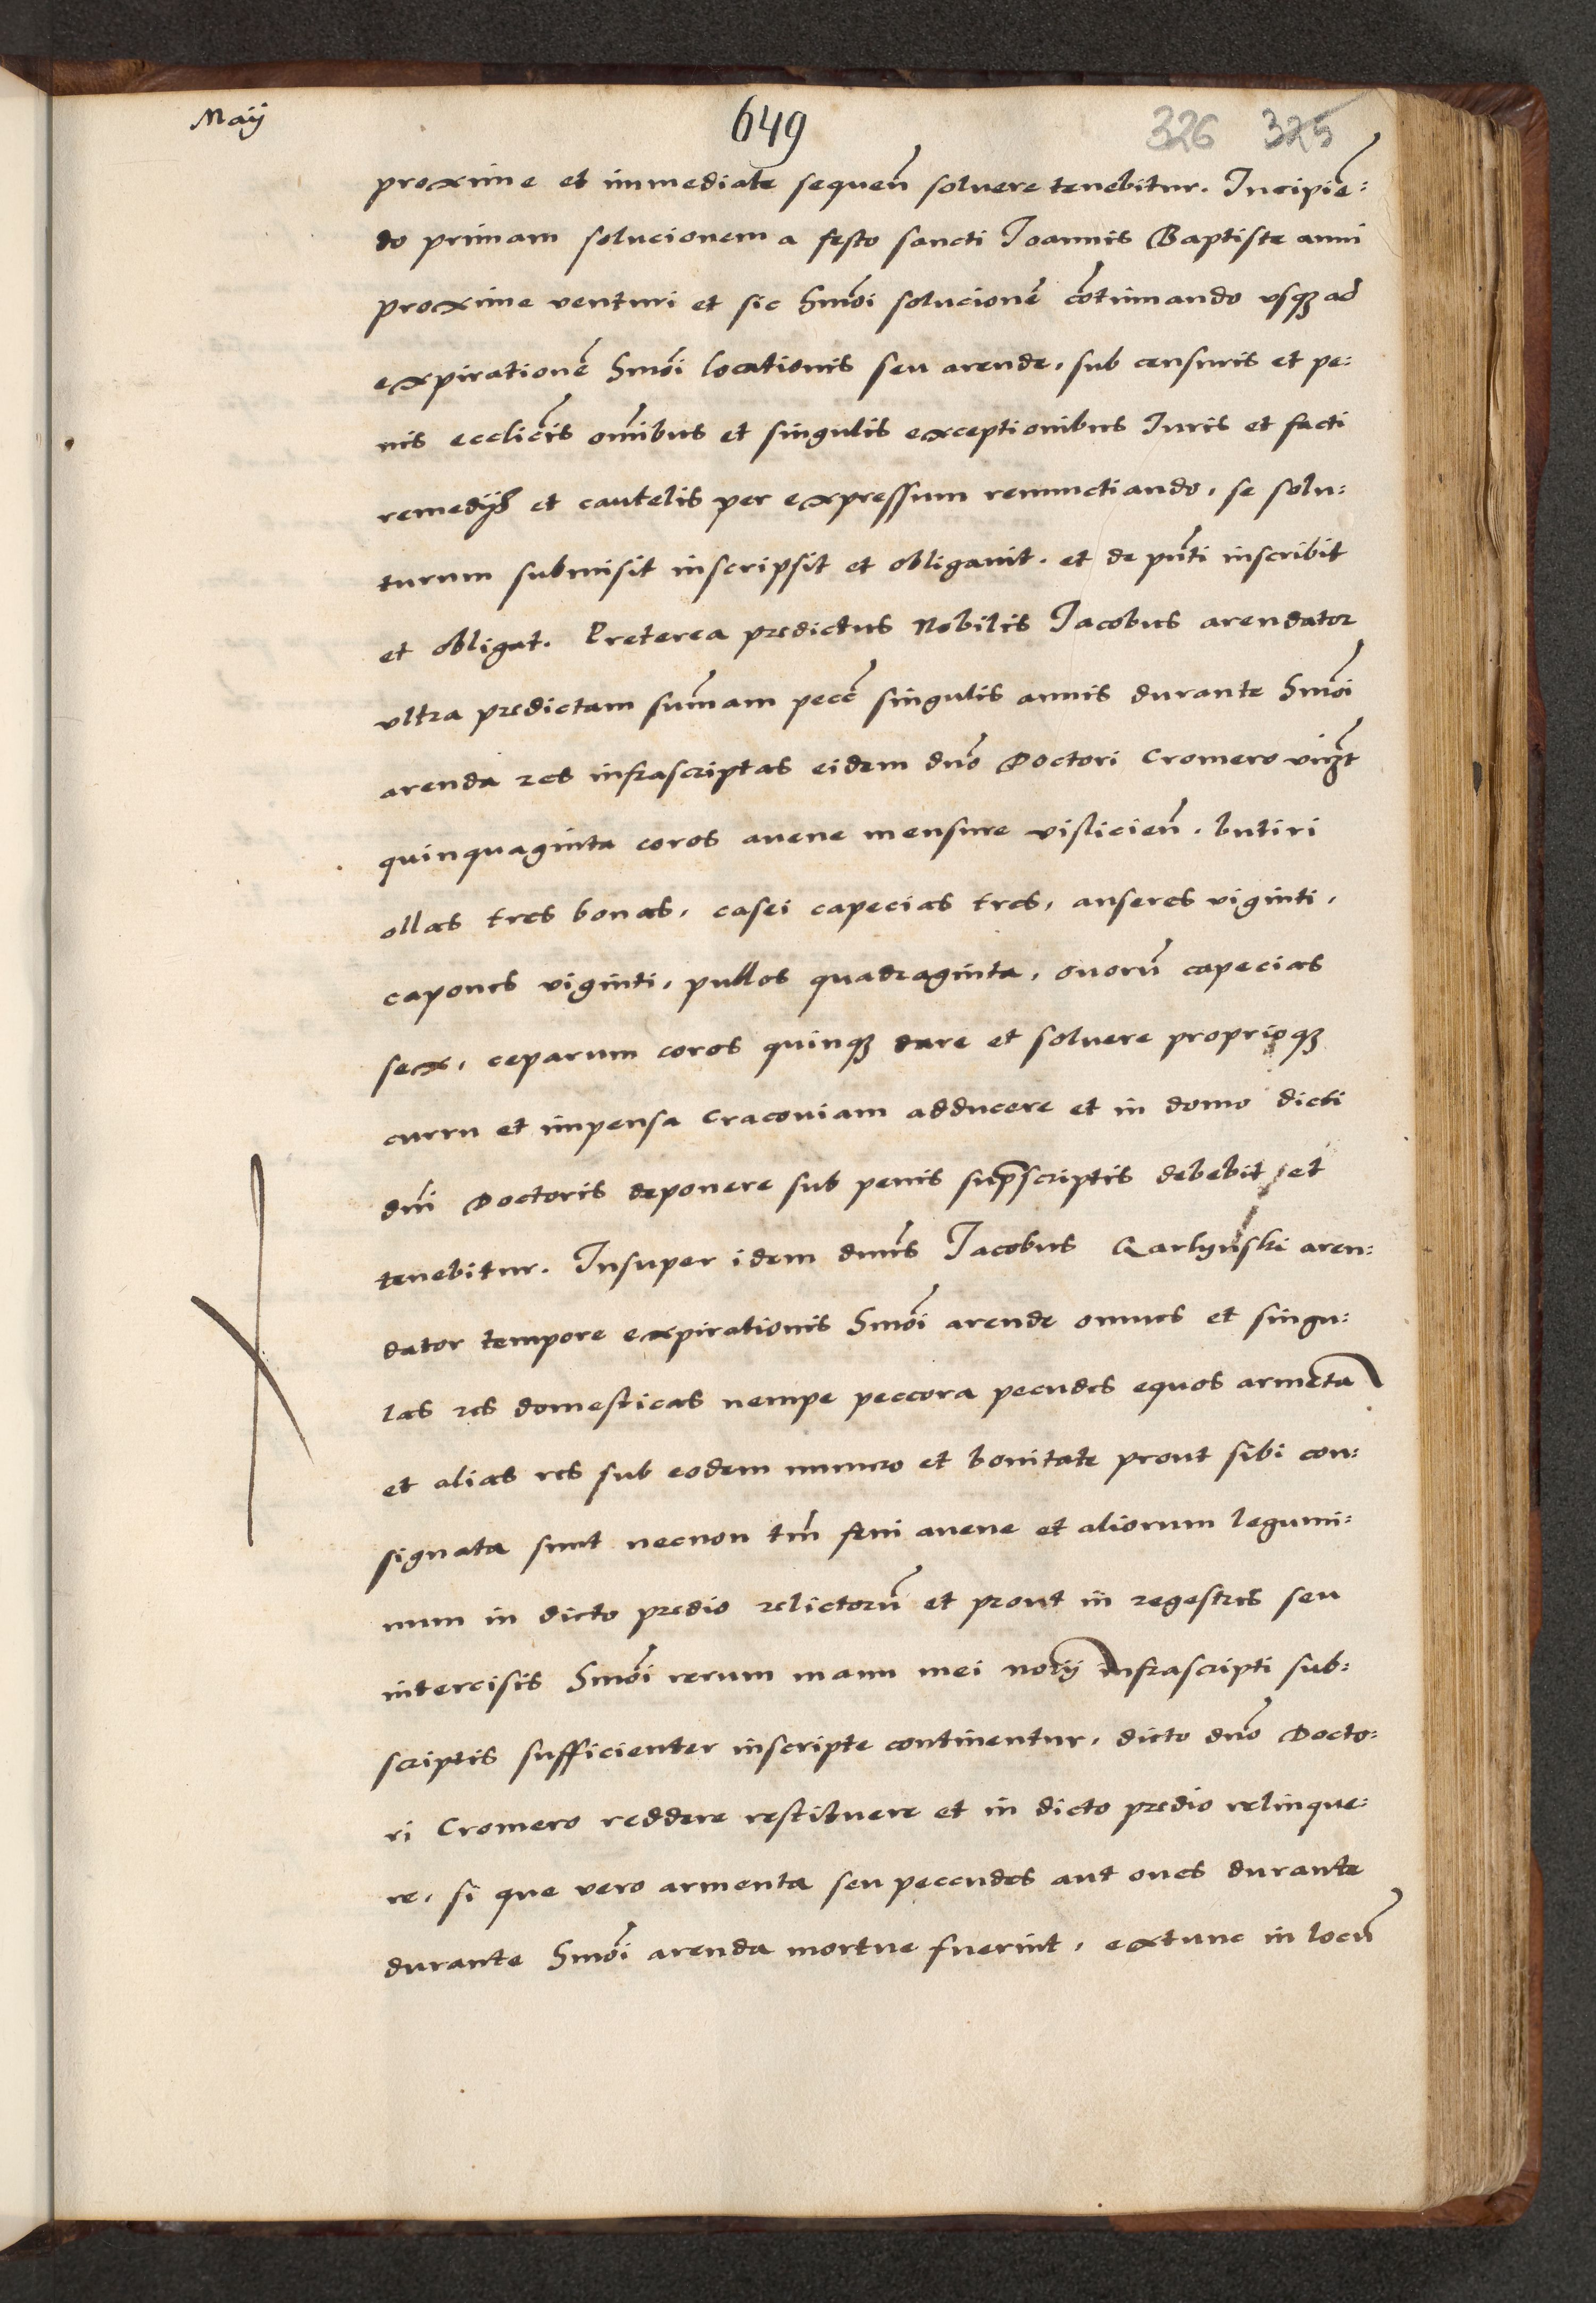 Maij
649
326 325
proxime et immediate sequen̄ solvere tenebitur. Incipiē:
do primam solucionem a festo sancti Joannis Baptiste anni
proxime venturi et sic hmōi solucionē cōtinuando usqꝫ ad
expirationē hmōi locationis seu arende, sub censuris et pe:
nis eccl̄icis om̄ibus et singulis exceptionibus Iuris et facti
remedijs et cautelis per expressum renunctiando, se solu:
turum submisit inscripsit et obligavit. et de pn̄ti inscribit
et obligat. Preterea predictus Nobilis Jacobus arendator
ultra predictam sum̄am pecc̄ singulis annis durante hmōi
arenda res infrascriptas eidem dn̄o Doctori Cromero viꝫt
quinquaginta coros avene mensure vislicien̄. butiri
ollas tres bonas, casei capecias tres, anseres viginti,
capones viginti, pullos quadraginta, ovorū capecias
sex, ceparum coros quinqꝫ dare et solvere proprioqꝫ
curru et impensa Cracoviam adducere et in domo dicti
dn̄i Doctoris deponere sub penis sup̄scriptis debebit et
tenebitur. Insuper idem dn̄us Jacobus Qarlynski aren:
dator tempore expirationis hmōi arende omnes et singu:
las res domesticas nempe peccora pecudes equos armēta
et alias res sub eodem numero et bonitate prout sibi con:
signata sunt necnon tm̄ feni avene et aliorum legumi:
num in dicto predio relictorū et prout in regestris seu
intercisis hmōi rerum manu mei not̄ij infrascripti sub:
scriptis sufficienter inscripte continentur, dicto dn̄o Docto:
ri Cromero reddere restituere et in dicto predio relinque:
re, si que vero armenta seu peccudes aut oves durante
durante hmōi arenda mortue fuerint, extunc in locū